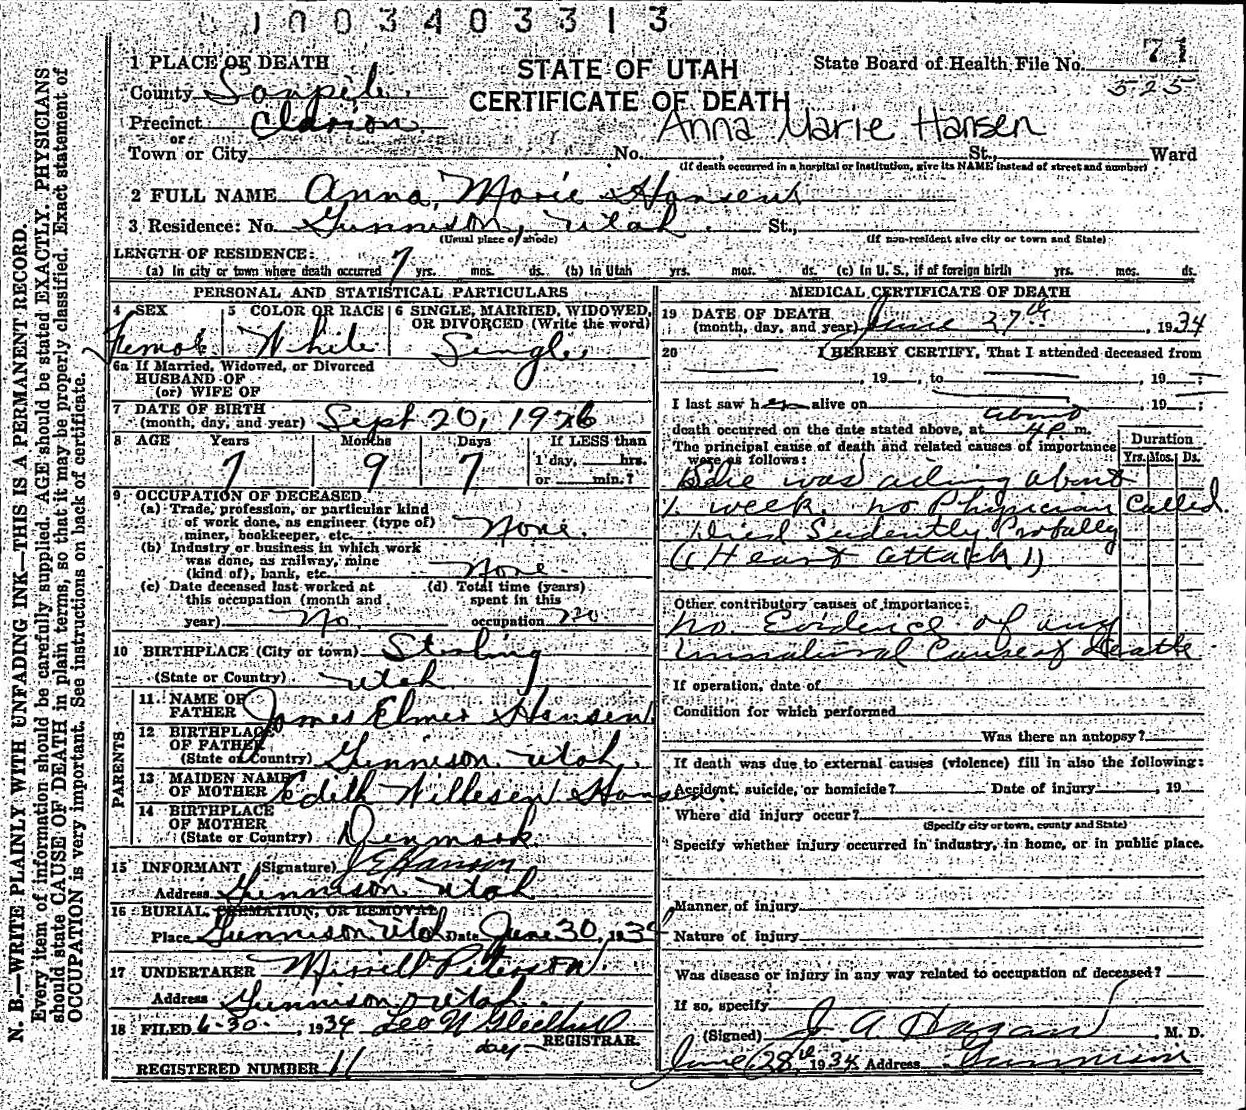 1003403313
1 PLACE OF DEATH
STATE OF UTAH
CERTIFICATE OF DEATH
State Board of Health File No. 71
525
County Sanpete
Precinct Clarion
or
Anna Marie Hansen
Town or City No. St., Ward
(If death occurred in a hospital or institution, give its NAME instead of street and number)
2 FULL NAME Anna Marie Hansen
3 Residence: No. Gunnison, Utah. St.,
(Usual place of abode) (If non-resident give city or town and State)
LENGTH OF RESIDENCE:
(a) In city or town where death occurred 7 yrs. mos. ds. (b) In Utah yrs. mos. ds. (c) In U. S., if of foreign birth yrs. mos. ds.
PERSONAL AND STATISTICAL PARTICULARS
4 SEX Female
5 COLOR OR RACE White
6 SINGLE, MARRIED, WIDOWED, OR DIVORCED (Write the word) Single
6a If Married, Widowed, or Divorced
HUSBAND OF
(or) WIFE OF
7 DATE OF BIRTH
(month, day, and year) Sept 20, 1926
8 AGE Years Months Days If LESS than
7 9 7 1 day, hrs.
or min.?
9 OCCUPATION OF DECEASED
(a) Trade, profession, or particular kind
of work done, as engineer (type of)
miner, bookkeeper, etc. None.
(b) Industry or business in which work
was done, as railway, mine
(kind of), bank, etc. None
(c) Date deceased last worked at (d) Total time (years)
this occupation (month and spent in this
year) No occupation no
10 BIRTHPLACE (City or town) Sterling
(State or Country) Utah
PARENTS
11 NAME OF
FATHER James Elmer Hansen
12 BIRTHPLACE
OF FATHER
(State or Country) Gunnison Utah
13 MAIDEN NAME
OF MOTHER Edith Willesen Hansen
14 BIRTHPLACE
OF MOTHER
(State or Country) Denmark
15 INFORMANT (Signature) J E Hansen
Address Gunnison Utah
16 BURIAL, CREMATION, OR REMOVAL
Place Gunnison Utah Date June 30, 1934
17 UNDERTAKER Merrill Peterson
Address Gunnison Utah.
18 FILED 6-30-, 1934 Leo N Gledhill
dep REGISTRAR.
REGISTERED NUMBER 11
MEDICAL CERTIFICATE OF DEATH
19 DATE OF DEATH
(month, day, and year) June 27th, 1934
20 I HEREBY CERTIFY, That I attended deceased from
, 19 , to , 19 ;
I last saw her alive on , 19 ;
about
death occurred on the date stated above, at 4 P. m.
The principal cause of death and related causes of importance
were as follows:
Duration
Yrs. Mos. Ds.
She was ailing about
1 week. no Physician Called.
Died Sudently Profally
(Heart attack)
Other contributory causes of importance:
No. Evidence of any
unnatural Cause of Death
If operation, date of
Condition for which performed
Was there an autopsy?
If death was due to external causes (violence) fill in also the following:
Accident, suicide, or homicide? Date of injury , 19
Where did injury occur?
(Specify city or town, county and State)
Specify whether injury occurred in industry, in home, or in public place.
Manner of injury
Nature of injury
Was disease or injury in any way related to occupation of deceased?
If so, specify
(Signed) J. A. Hagan, M. D.
June 28th 1934 Address Gunnison
N. B.—WRITE PLAINLY WITH UNFADING INK—THIS IS A PERMANENT RECORD.
Every item of information should be carefully supplied. AGE should be stated EXACTLY. PHYSICIANS
should state CAUSE OF DEATH in plain terms, so that it may be properly classified. Exact statement of
OCCUPATION is very important. See instructions on back of certificate.